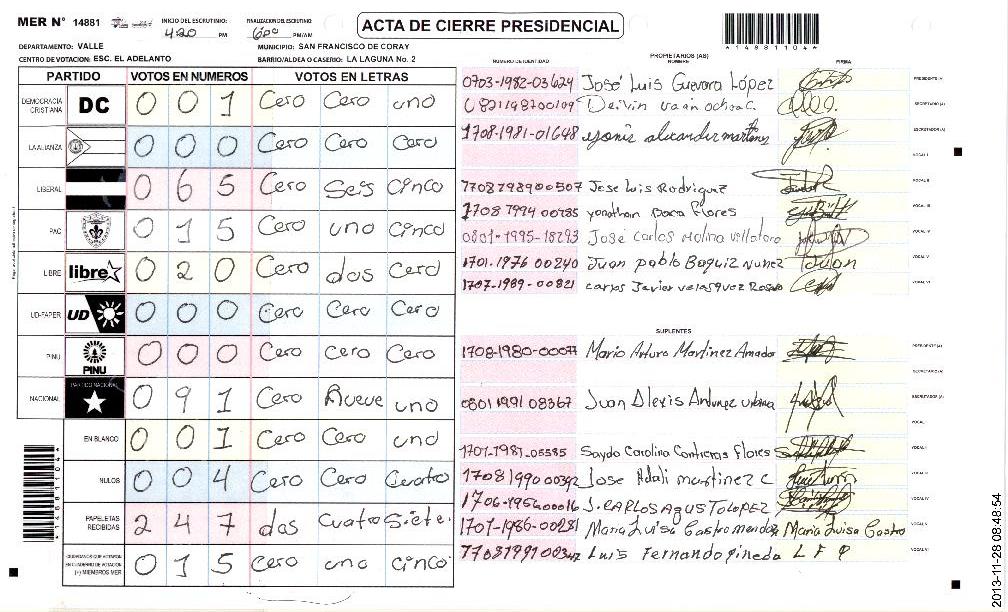 MER N° 14881 INICIO DEL ESCRUTINIO: 4:20 PM FINALIZACION DEL ESCRUTINIO PM/AM
ACTA DE CIERRE PRESIDENCIAL
*14881104*
DEPARTAMENTO: VALLE MUNICIPIO: SAN FRANCISCO DE CORAY
CENTRO DE VOTACION: ESC. EL ADELANTO BARRIO/ALDEA O CASERIO: LA LAGUNA No. 2
PARTIDO VOTOS EN NUMEROS VOTOS EN LETRAS
DEMOCRACIA CRISTIANA DC 0 0 1 Cero Cero uno
LA ALIANZA 0 0 0 Cero Cero Cero
LIBERAL 0 6 5 Cero Seis Cinco
PAC 0 1 5 Cero uno Cinco
LIBRE libre 0 2 0 Cero dos Cero
UD-FAPER UD 0 0 0 Cero Cero Cero
PINU PINU 0 0 0 Cero Cero Cero
NACIONAL PARTIDO NACIONAL 0 9 1 Cero Nueve uno
EN BLANCO 0 0 1 Cero Cero uno
NULOS 0 0 4 Cero Cero Cuatro
PAPELETAS RECIBIDAS 2 4 7 dos Cuatro Siete.
CIUDADANOS QUE VOTARON EN CUADERNO DE VOTACION (+) MIEMBROS MER 0 1 5 Cero uno Cinco
*14881104*
NUMERO DE IDENTIDAD PROPIETARIOS (AS) NOMBRE FIRMA
0703-1982-03624 José Luis Guevara López PRESIDENTE (A)
SECRETARIO (A)
1708-1981-01648 yonis alexander martinez ESCRUTADOR (A)
VOCAL I
Jose Luis Rodriguez VOCAL II
yonathan Flores VOCAL III
0801-1995-18293 José Carlos Molina Villatoro VOCAL IV
1701-1976 00240 Juan pablo Nunez VOCAL V
1707-1989-00821 carlos Javier velasquez VOCAL VI
SUPLENTES
1708-1980-00077 Mario Arturo Martinez Amado PRESIDENTE (A)
SECRETARIO (A)
0801 1991 08367 Juan Alexis ESCRUTADOR (A)
VOCAL I
1701-1981-05585 Carolina Contreras Flores VOCAL II
1708 1990 00392 Jose Adali martinez C VOCAL III
J. CARLOS VOCAL IV
1701-1966-00281 Maria Luisa Castro mendoza Maria Luisa Castro VOCAL V
Luis Fernando pineda L F P VOCAL VI
2013-11-28 08:48:54